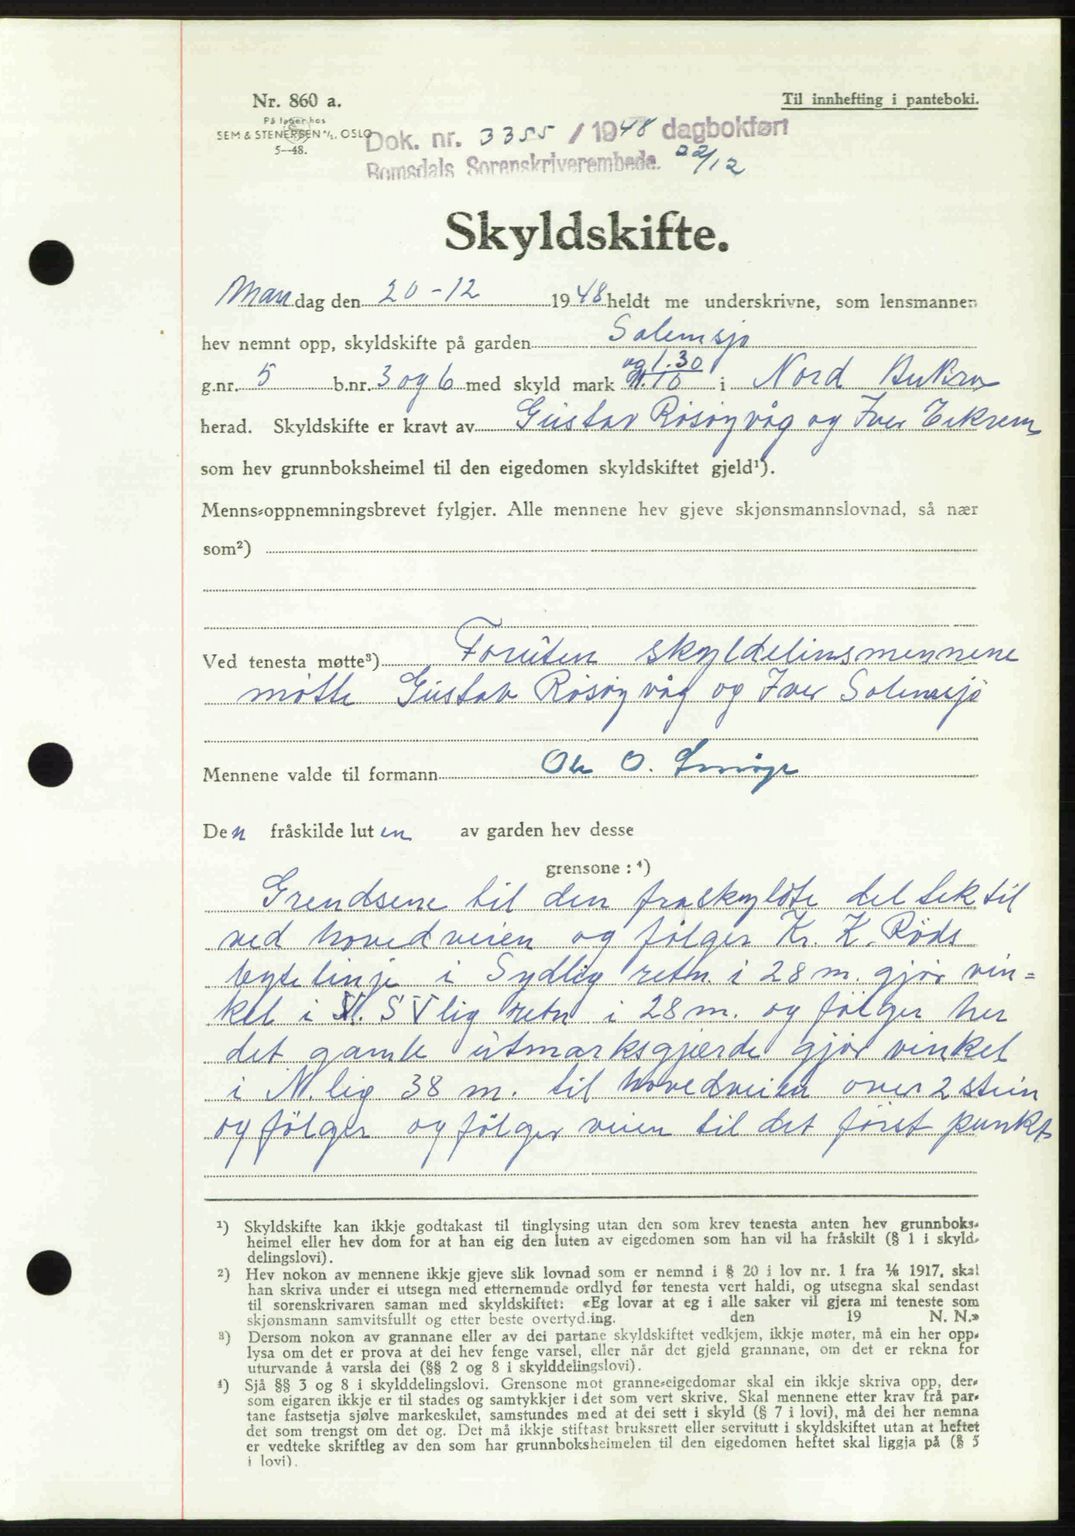 Nr. 860 a.
Til innhefting i panteboki.
På lager hos
SEM & STENERSEN A/S, OSLO
5—48.
Dok. nr. 3355 / 1948 dagbokført
Romsdals Sorenskriverembede. 22/12
Skyldskifte.
Mandag den 20-12 1948 heldt me underskrivne, som lensmannen
hev nemnt opp, skyldskifte på garden Solemsjø
g.nr. 5 b.nr. 3 og 6 med skyld mark og 1.30 i Nord Aukra
herad. Skyldskifte er kravt av Gustav Røsøyvåg og Iver Eikrem
som hev grunnboksheimel til den eigedomen skyldskiftet gjeld¹).
Menns-oppnemningsbrevet fylgjer. Alle mennene hev gjeve skjønsmannslovnad, så nær
som²)
Ved tenesta møtte³) Foruten skyldelinsmennene
møtte Gustav Røsøyvåg og Iver Solemsjø
Mennene valde til formann Ole O.
Den fråskilde luten av garden hev desse
grensone : ⁴)
Grendsene til den fraskyldte del tek til
ved hovedveien og følger Kr. K. Røds
bytelinje i Sydlig retn. i 28 m. gjør vin=
kel i SVlig retn i 28 m. og følger her
det gamle utmarksgjærde gjør vinkel
i N.lig 38 m. til hovedveien over 2 stein
og følger og følger veien til det først punkt
¹) Skyldskifte kan ikkje godtakast til tinglysing utan den som krev tenesta anten hev grunnboks-
heimel eller hev dom for at han eig den luten av eigedomen som han vil ha fråskilt (§ 1 i skyld-
delingslovi).
²) Hev nokon av mennene ikkje gjeve slik lovnad som er nemnd i § 20 i lov nr. 1 fra 1/6 1917, skal
han skriva under ei utsegn med etternemnde ordlyd før tenesta vert haldi, og utsegna skal sendast
til sorenskrivaren saman med skyldskiftet: «Eg lovar at eg i alle saker vil gjera mi teneste som
skjønsmann samvitsfullt og etter beste overtyd.ing. den 19 N. N.»
³) Dersom nokon av grannane eller av dei partane skyldskiftet vedkjem, ikkje møter, må ein her opp-
lysa om det er prova at dei hev fenge varsel, eller når det gjeld grannane, om det er rekna for
uturvande å varsla dei (§§ 2 og 8 i skylddelingslovi).
⁴) Sjå §§ 3 og 8 i skylddelingslovi. Grensone mot granne-eigedomar skal ein ikkje skriva opp, der-
som eigaren ikkje er til stades og samtykkjer i det som vert skrive. Skal mennene etter krav frå par-
tane fastsetja sjølve markeskilet, samstundes med at dei sett i skyld (§ 7 i lovi), må dei her nemna
det som trengst om det og. Det må ikkje stiftast bruksrett eller servitutt i skyldskiftet utan at heftet
er vedteke skriftleg av den som har grunnboksheimelen til den eigedomen heftet skal liggja på (§ 5
i lovi).